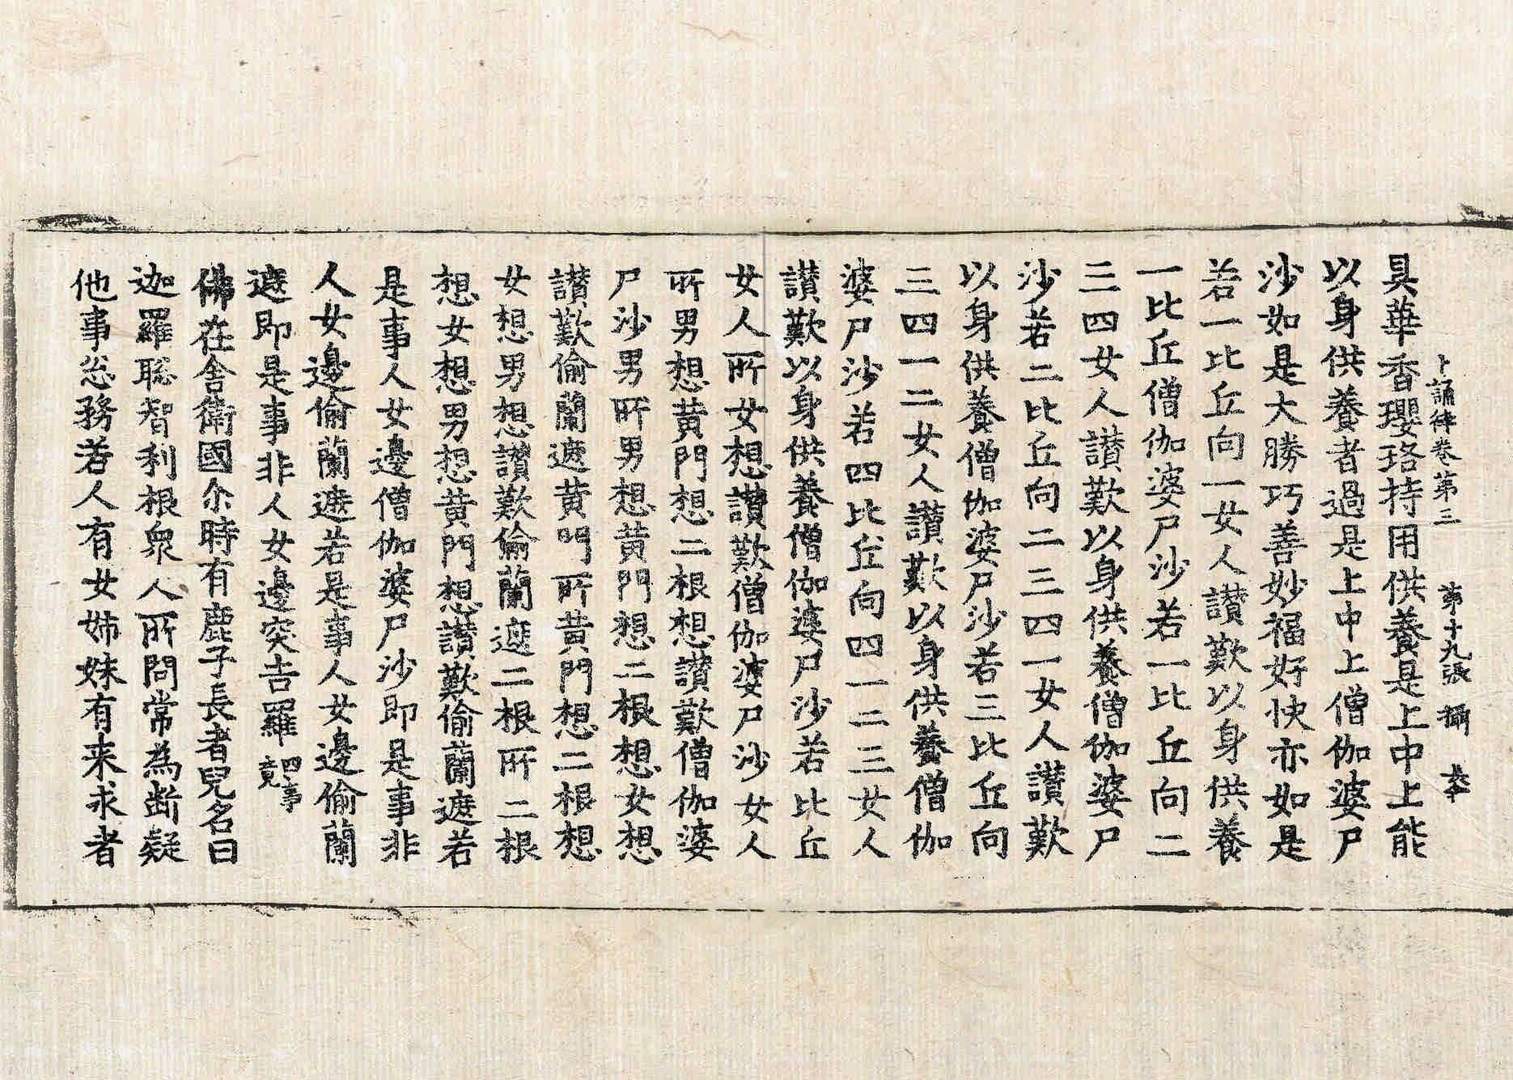 十誦律卷第三 第十九張 攝
具華香瓔珞持用供養是上中上能
以身供養者過是上中上僧伽婆尸
沙如是大勝巧善妙福好快亦如是
若一比丘向一女人讃歎以身供養
一比丘僧伽婆尸沙若一比丘向二
三四女人讃歎以身供養僧伽婆尸
沙若二比丘向二三四一女人讃歎
以身供養僧伽婆尸沙若三比丘向
三四一二女人讃歎以身供養僧伽
婆尸沙若四比丘向四一二三女人
讃歎以身供養僧伽婆尸沙若比丘
女人所女想讃歎僧伽婆尸沙女人
所男想黄門想二根想讃歎僧伽婆
尸沙男所男想黄門想二根想女想
讃歎偷蘭遮黄門所黄門想二根想
女想男想讃歎偷蘭遮二根所二根
想女想男想黄門想讃歎偷蘭遮若
是事人女邊僧伽婆尸沙即是事非
人女邊偷蘭遮若是事人女邊偷蘭
遮即是事非人女邊突吉羅 四事竟
佛在舍衛國尒時有鹿子長者兒名曰
迦羅聡智利根衆人所問常為断疑
他事怱務若人有女姊妹有来求者